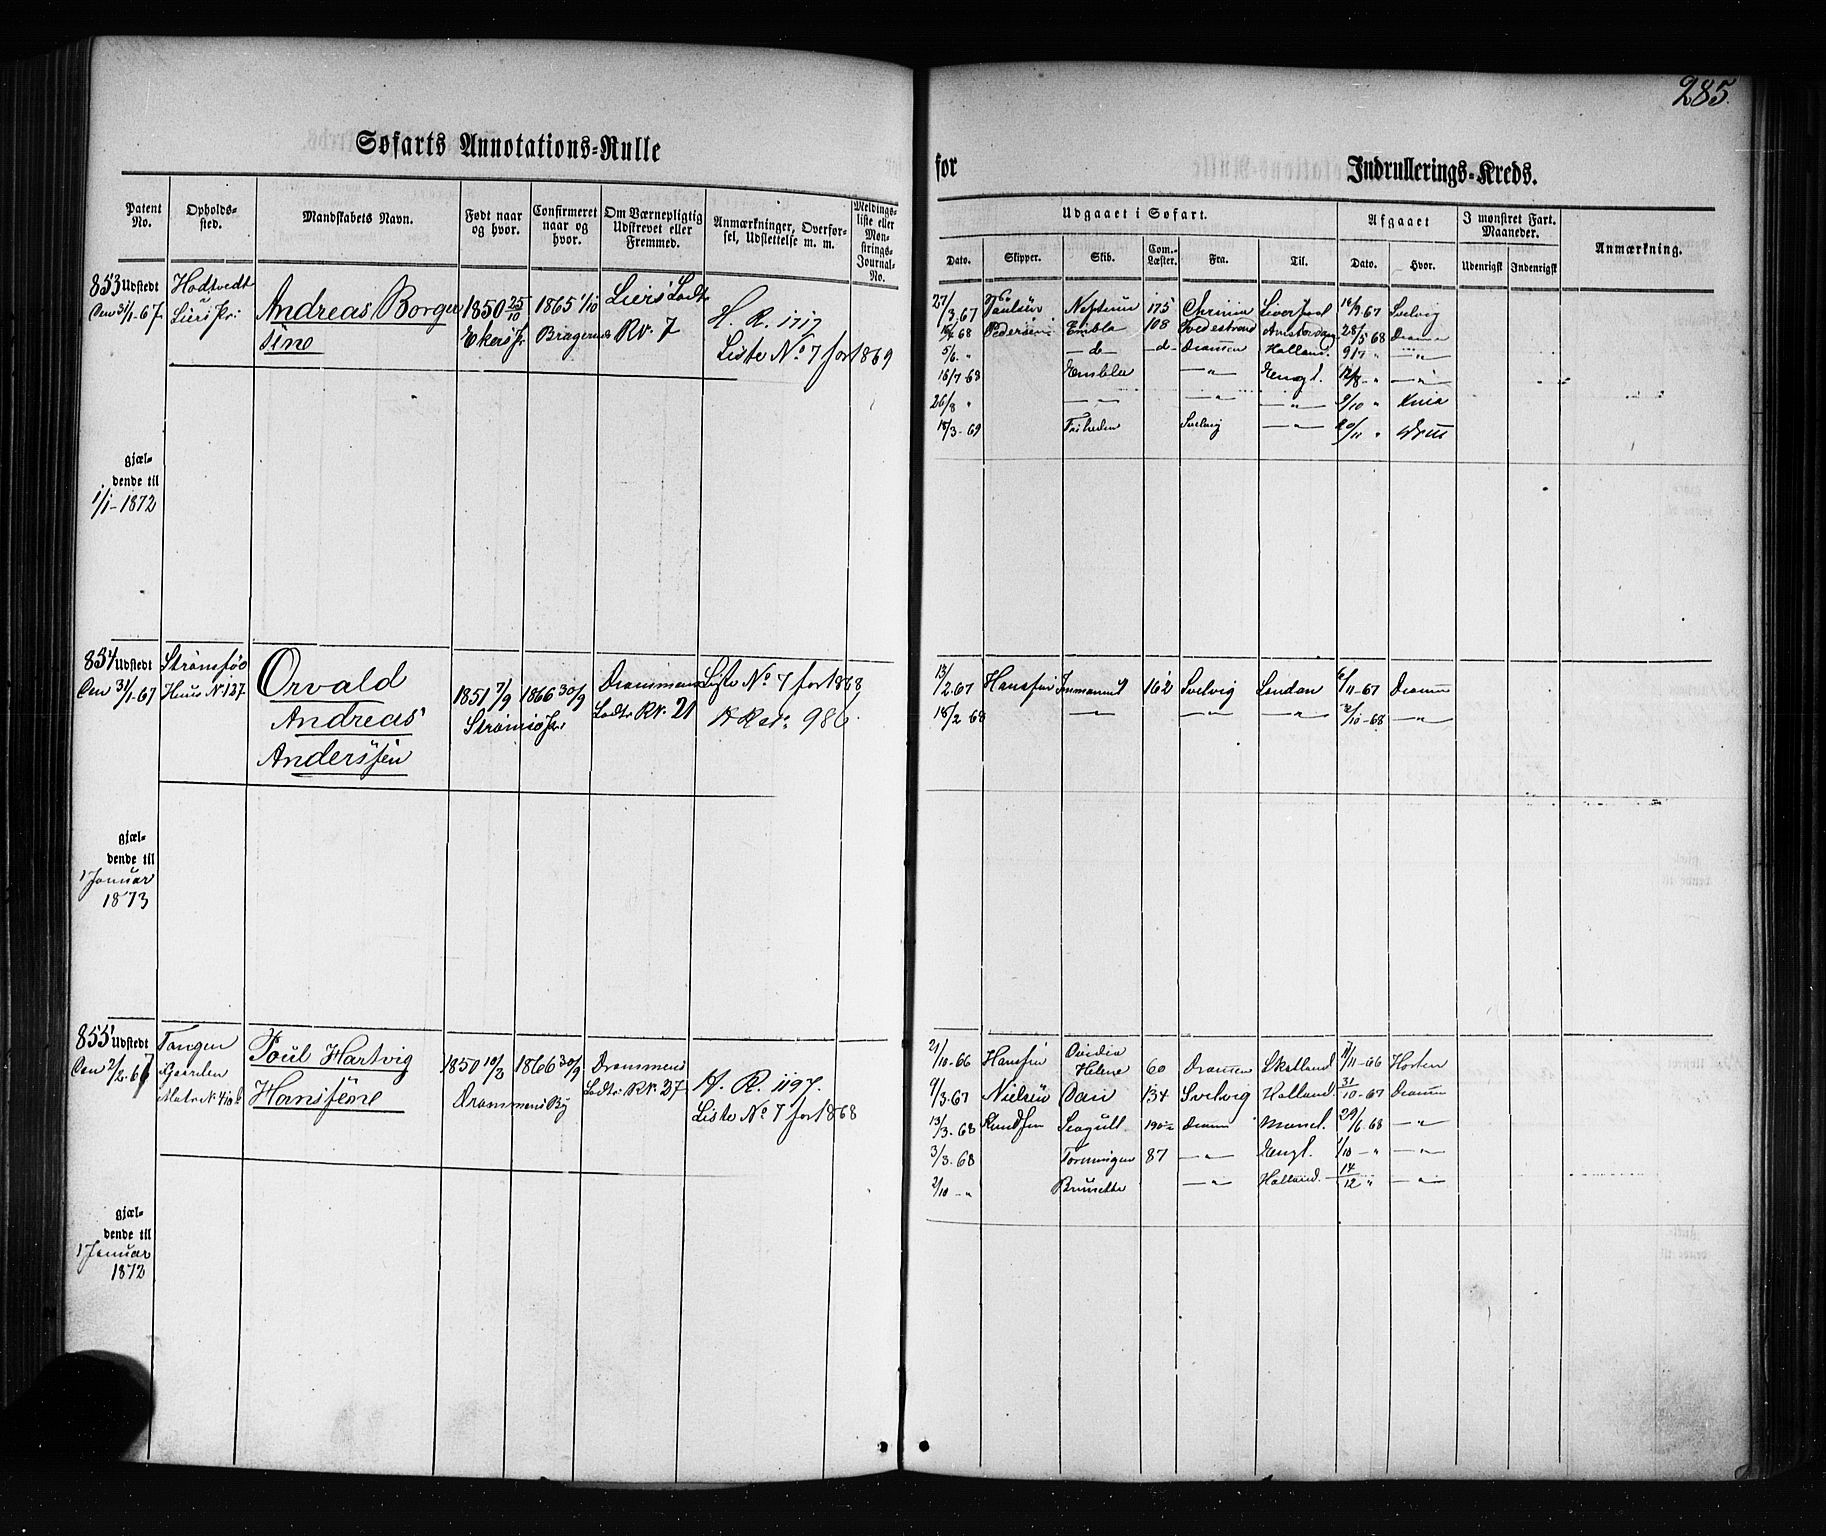 285.
Søfarts Annotations-Rulle
for Indrullerings-Kreds.
Patent No.
Opholds-sted.
Mandskabets Navn.
Født naar og hvor.
Confirmeret naar og hvor.
Om Værnepligtig Udskrevet eller Fremmed.
Anmærkninger, Overførsel, Udslettelse m. m.
Meldings-liste eller Mønstrings-Journal-No.
Udgaaet i Søfart.
Afgaaet
I mønstret Fart. Maaneder.
Anmærkning.
Dato. Skipper. Skib. Com. Læster. Fra. Til. Dato. Hvor. Udenrigst Indenrigst
853 Udstedt Hodtvedt Andreas Borger 1850 25/10 1865 1/10 Liers Lodts
Den 31/1-67. Liers Pr: sine Ekers Pr Bragernes Rv. 7 H. R. 1717
Liste No 7 for 1869
27/3.67 Paulsen Neptun 175 Chrinia Liverpool 16/9 67 Svelvig
68 Pedersen Embla 108 Hvedestrand Amsterdam 28/5 68 Dramen
5/6 " — d — — d — Dramen Holland. 9/7 " — " —
16/7 68 Embla — " — Engl. 12/8 - " — " —
26/8 " — " — — " — — " — 9/10 "
18/3-69 Friheden Svelvig — " — 20/11 "
gjæl-
dende til
1/1-1872
854 Udstedt Strømsøe Orvald 1851 7/9 1866 30/9 Drammens Liste No 7 for 1868
Den 31/1.67 Huus N. 127. Andreas Strømsø Pr Lodts Rv. 21 986
Anderssen
13/2.67 Hanssen Immanuel 162 Svelvig London 6/11-67 Dramen
18/2 68 — " — — " — — " — /10-68 — " —
gjæl-
dende til
1 Januar
1873
855 Udstedt Tangen Poul Hartvig 1850 10/3 1866 30/9 Drammens
Den 2/2.67 Matr N 410 b Hanssene Drammens By Lodts Rv. 27 H. R. 1197.
Liste No 7 for 1868
21/10.66 Hanssen Ovidia Helene 60 Dramen Skotland /11-66 Horten
9/3.67 Nielsen Dan 134 Svelvig Holland. 31/10-67 Dramen
13/3.68 Knudsen Seagull 190 Dramen 29/6.68 — " —
3/3.68 Foreningen 87 — " — Engl. 1/10 - " — " —
2/10 - " Brunette — " — Holland. 14/12 " — " —
gjæl-
dende til
1 Januar
1872